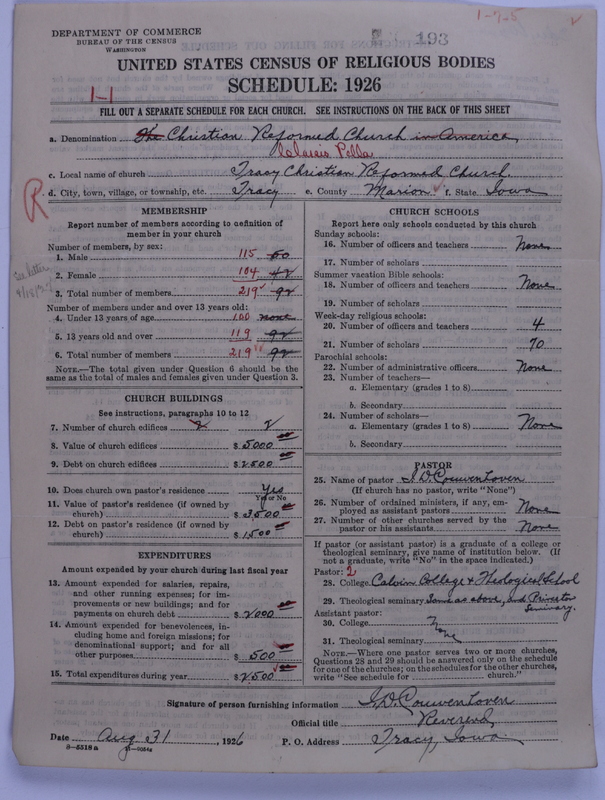 1-7-5
DEPARTMENT OF COMMERCE
BUREAU OF THE CENSUS
WASHINGTON
193
UNITED STATES CENSUS OF RELIGIOUS BODIES
SCHEDULE: 1926
1-1
FILL OUT A SEPARATE SCHEDULE FOR EACH CHURCH. SEE INSTRUCTIONS ON THE BACK OF THIS SHEET
a. Denomination The Christian Reformed Church in America
Classis Pella
c. Local name of church Tracy Christian Reformed Church.
d. City, town, village, or township, etc. Tracy e. County Marion f. State Iowa
R
MEMBERSHIP
Report number of members according to definition of
member in your church
Number of members, by sex:
1. Male 115 50
2. Female 104 42
See letter
3. Total number of members 219 92
Number of members under and over 13 years old:
4. Under 13 years of age 100 none
5. 13 years old and over 119 92
6. Total number of members 219 92
NOTE.—The total given under Question 6 should be the
same as the total of males and females given under Question 3.
CHURCH BUILDINGS
See instructions, paragraphs 10 to 12
7. Number of church edifices 2 2
8. Value of church edifices $ 5000
9. Debt on church edifices $ 2500
10. Does church own pastor's residence Yes
Yes or No
11. Value of pastor's residence (if owned by
church) $ 3500
12. Debt on pastor's residence (if owned by
church) $ 1500
EXPENDITURES
Amount expended by your church during last fiscal year
13. Amount expended for salaries, repairs,
and other running expenses; for im-
provements or new buildings; and for
payments on church debt $ 2000
14. Amount expended for benevolences, in-
cluding home and foreign missions; for
denominational support; and for all
other purposes $ 500
15. Total expenditures during year $ 2500
CHURCH SCHOOLS
Report here only schools conducted by this church
Sunday schools:
16. Number of officers and teachers None
17. Number of scholars
Summer vacation Bible schools:
18. Number of officers and teachers None
19. Number of scholars
Week-day religious schools:
20. Number of officers and teachers 4
21. Number of scholars 70
Parochial schools:
22. Number of administrative officers None
23. Number of teachers—
a. Elementary (grades 1 to 8)
b. Secondary
24. Number of scholars—
a. Elementary (grades 1 to 8) None
b. Secondary
PASTOR
25. Name of pastor I. D. Couwenhoven
(If church has no pastor, write "None")
26. Number of ordained ministers, if any, em-
ployed as assistant pastors None
27. Number of other churches served by the
pastor or his assistants None
If pastor (or assistant pastor) is a graduate of a college or
theological seminary, give name of institution below. (If
not a graduate, write "No" in the space indicated.)
Pastor: 2
28. College Calvin College & Theological School
29. Theological seminary Same as above, and Princeton
Seminary.
Assistant pastor:
30. College None
31. Theological seminary
NOTE.—Where one pastor serves two or more churches,
Questions 28 and 29 should be answered only on the schedule
for one of the churches; on the schedules for the other churches,
write "See schedule for church."
Signature of person furnishing information I. D. Couwenhoven
Official title Reverend
Date Aug 31, 1926 P. O. Address Tracy, Iowa
8-5518a